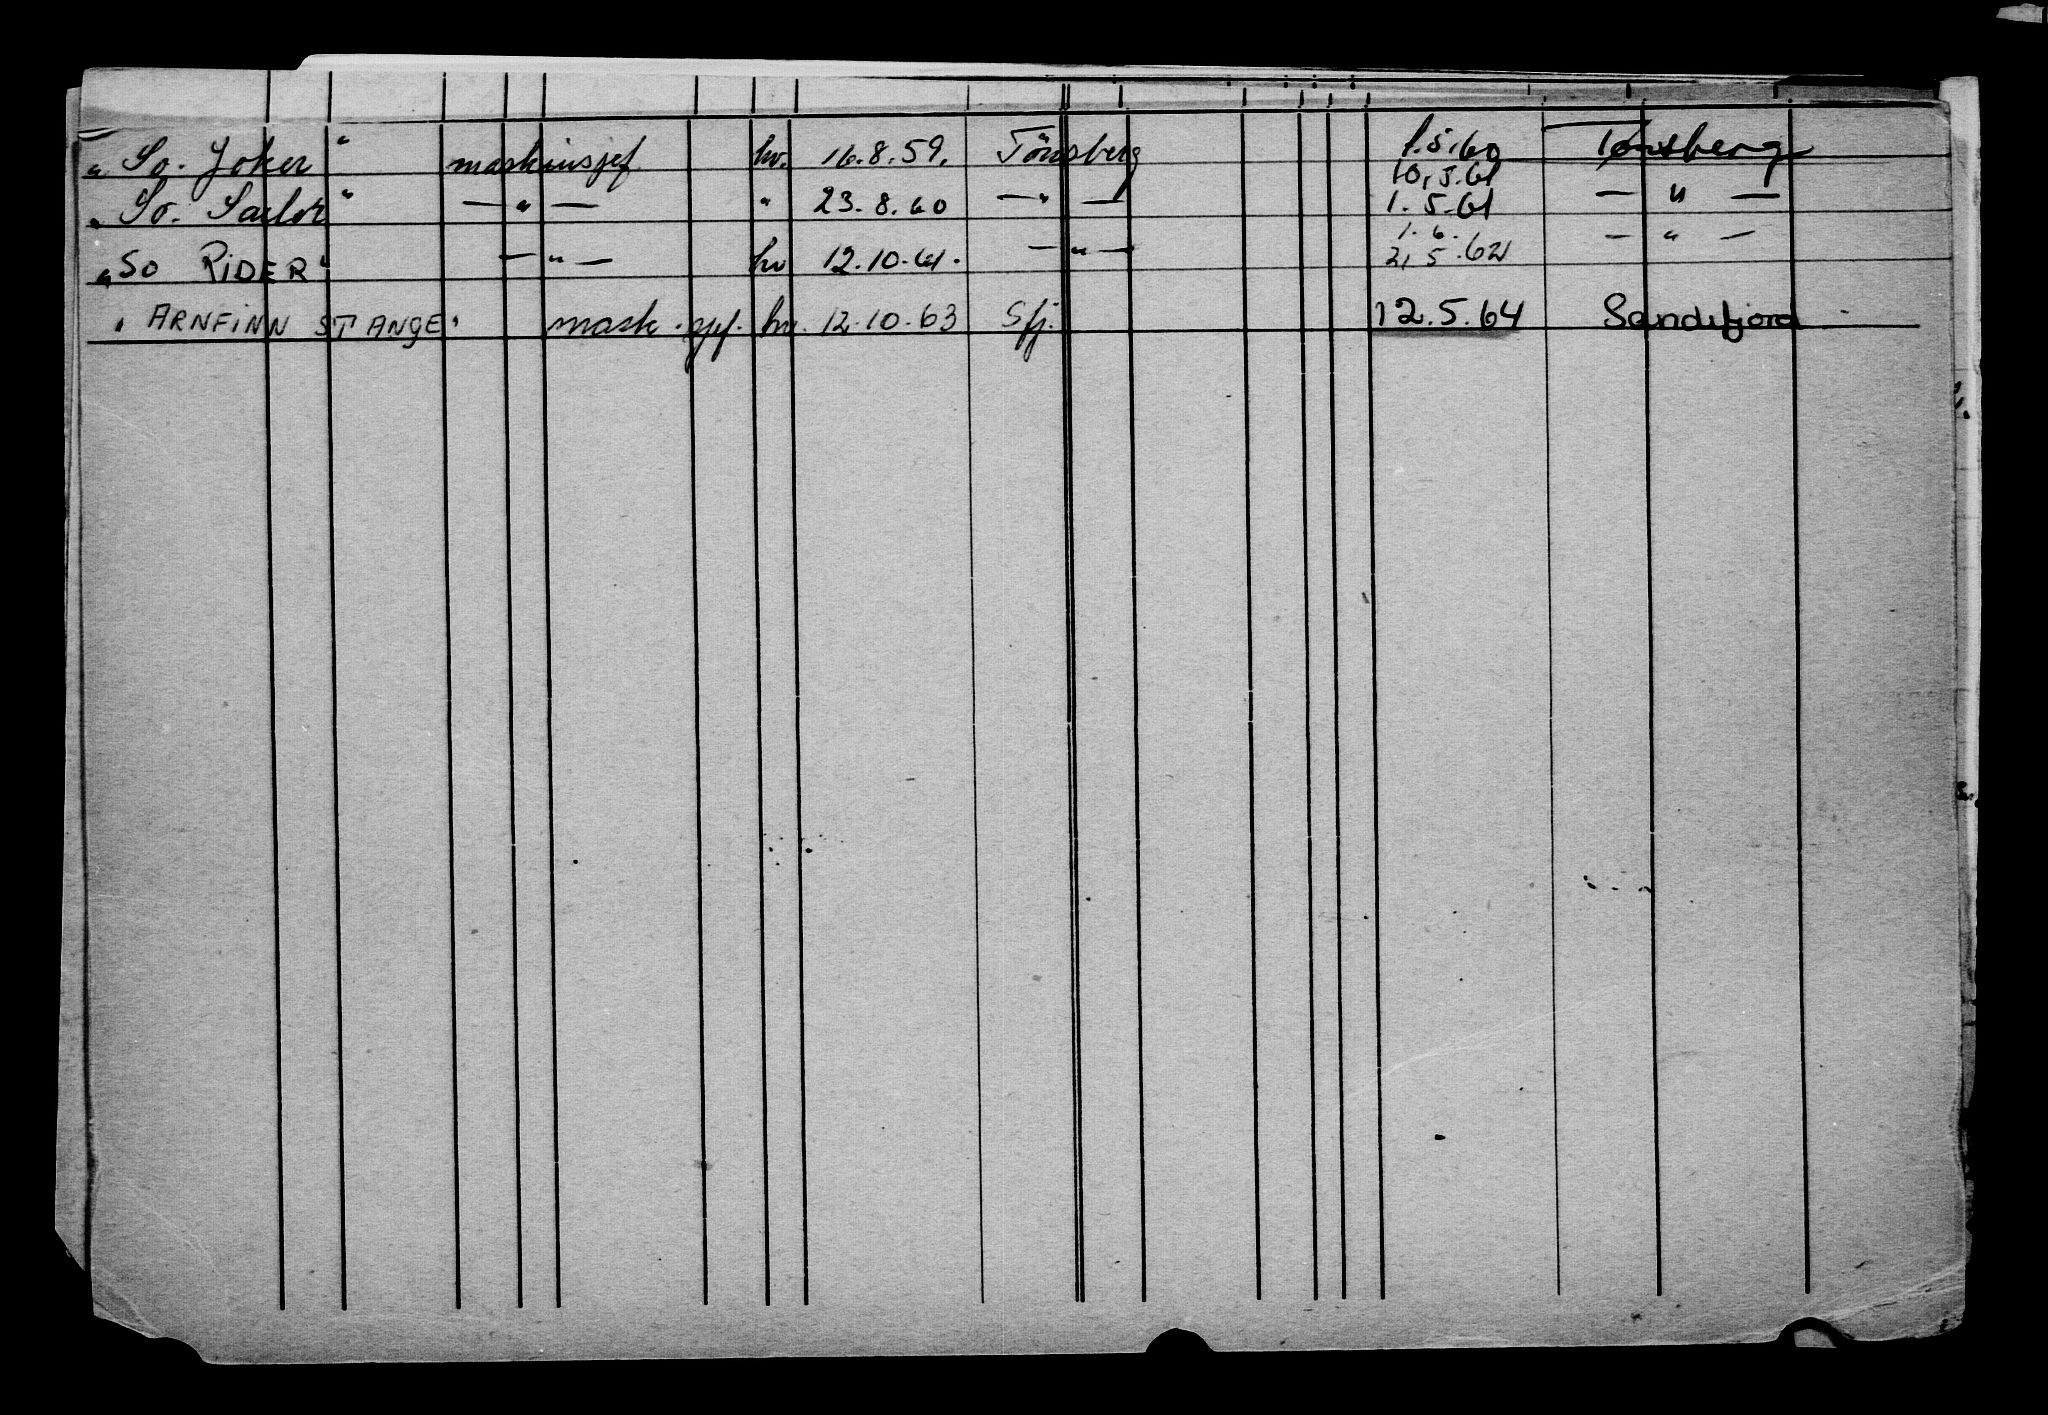 „So. Joker" maskinsjef hv. 16.8.59. Tönsberg 1.5.60 Tønsberg
10.5.61
„So. Sailor" — " — " 23.8.60 — " — 1.5.61 — " —
1.6.
„SO RIDER" — " — hv 12.10.61. — " — 2.5.62 — " —
"ARNFINN STANGE" mask.sjef. hv. 12.10.63 Sfj. 12.5.64 Sandefjord